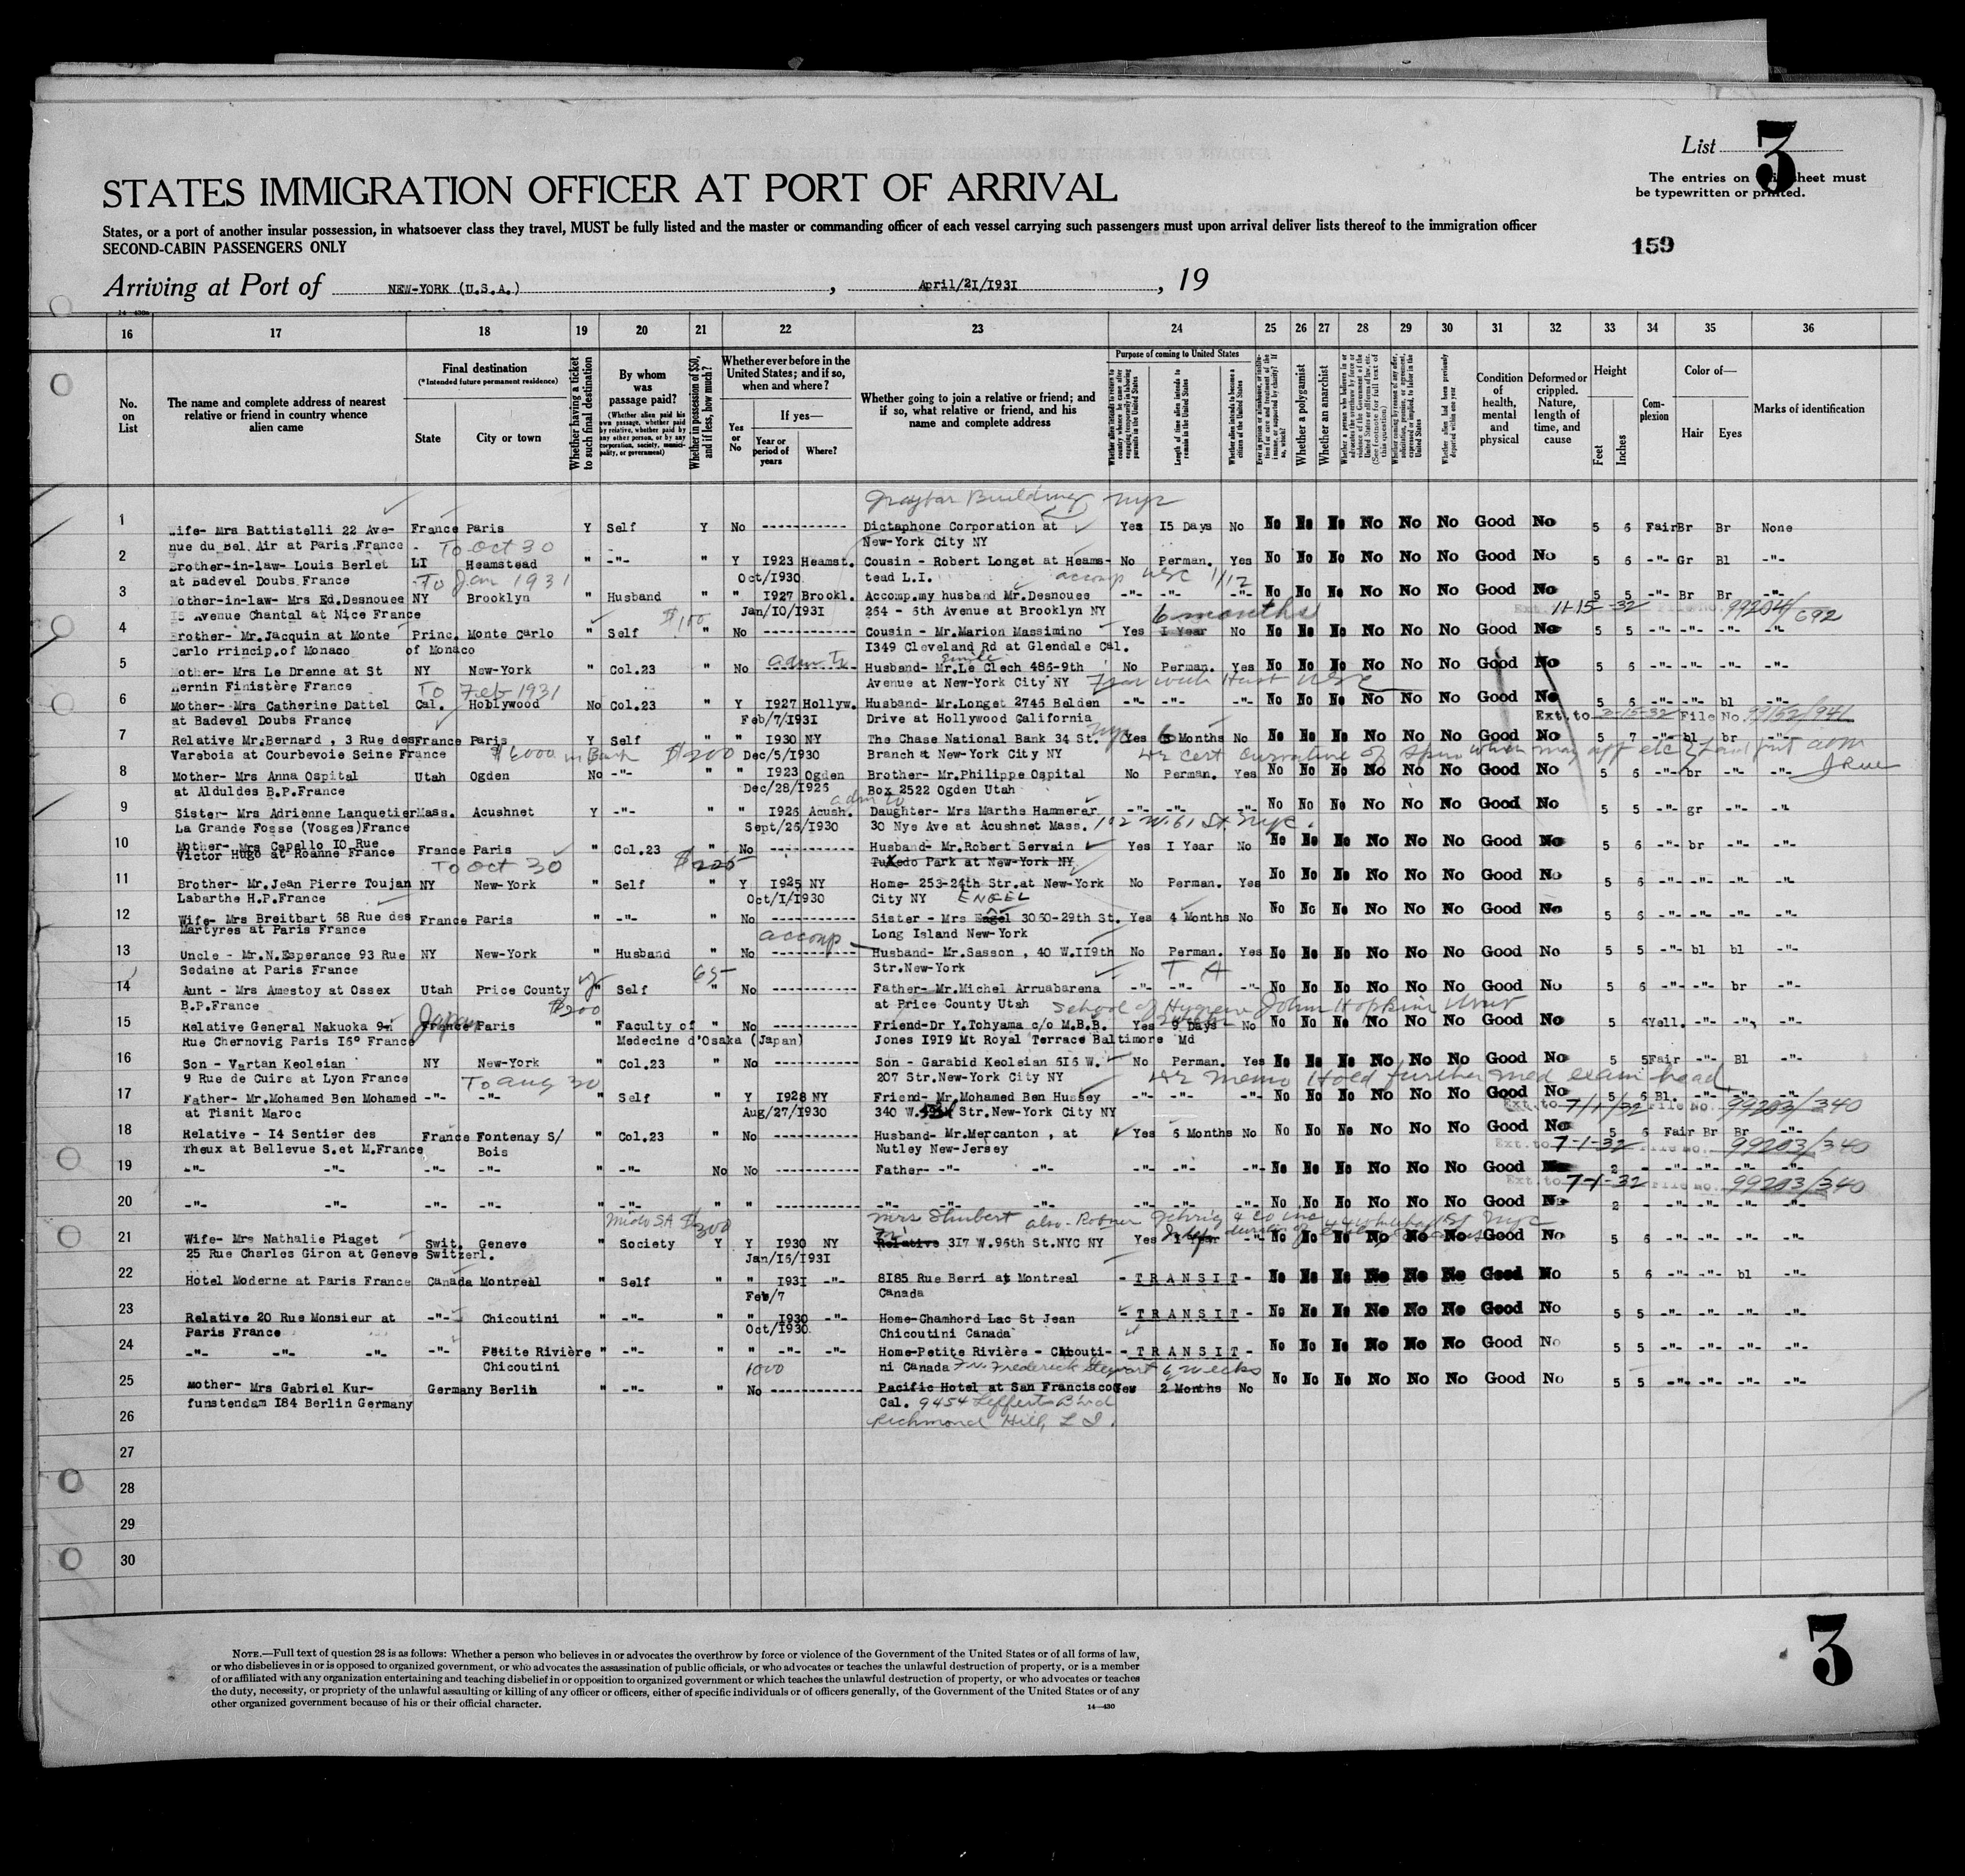 List 3
The entries on this sheet must
be typewritten or printed.
STATES IMMIGRATION OFFICER AT PORT OF ARRIVAL
States, or a port of another insular possession, in whatsoever class they travel, MUST be fully listed and the master or commanding officer of each vessel carrying such passengers must upon arrival deliver lists thereof to the immigration officer
SECOND-CABIN PASSENGERS ONLY
159
Arriving at Port of NEW-YORK (U.S.A.), April/21/1931, 19
16 17 18 19 20 21 22 23 24 25 26 27 28 29 30 31 32 33 34 35 36
No. on List
The name and complete address of nearest relative or friend in country whence alien came
Final destination
(*Intended future permanent residence)
State
City or town
Whether having a ticket to such final destination
By whom was passage paid?
(Whether alien paid his own passage, whether paid by relative, whether paid by any other person, or by any corporation, society, municipality, or government)
Whether in possession of $50, and if less, how much?
Whether ever before in the United States; and if so, when and where?
Yes or No
If yes—
Year or period of years
Where?
Whether going to join a relative or friend; and if so, what relative or friend, and his name and complete address
Purpose of coming to United States
Length of time alien intends to remain in the United States
Whether alien intends to become a citizen of the United States
Whether a polygamist
Whether an anarchist
Condition of health, mental and physical
Deformed or crippled. Nature, length of time, and cause
Height
Feet
Inches
Complexion
Color of—
Hair
Eyes
Marks of identification
Graybar Building NYC
1 Wife- Mrs Battistelli 22 Ave- France Paris Y Self Y No ----------- Dictaphone Corporation at Yes 15 Days No No No No No No No Good No 5 6 Fair Br Br None
nue du Bel Air at Paris France New-York City NY
To Oct 30
2 Brother-in-law- Louis Berlet LI Heamstead " -"- " Y 1923 Heamst. Cousin - Robert Longet at Heams- No Perman. Yes No No No No No No Good No 5 6 -"- Gr Bl -"-
at Badevel Doubs France Oct/1930 tead L.I.
To Jan 1931
3 Mother-in-law- Mrs Ed.Desnouee NY Brooklyn " Husband " " 1927 Brookl. Accomp.my husband Mr.Desnouee -"- -"- -"- No No No No No No Good No 5 5 -"- Br Br -"-
Avenue Chantal at Nice France Jan/10/1931 264 - 6th Avenue at Brooklyn NY
$100 6 months Ext. 11-15-32 File No. 99204/692
4 Brother- Mr.Jacquin at Monte Princ. Monte Carlo " Self " No ----------- Cousin - Mr.Marion Massimino Yes 1 Year No No No No No No No Good No 5 5 -"- -"- -"- -"-
Carlo Princip.of Monaco of Monaco 1349 Cleveland Rd at Glendale Cal.
5 Mother- Mrs Le Drenne at St NY New-York " Col.23 " No Husband- Mr.Le Clech 486-9th No Perman. Yes No No No No No No Good No 5 6 -"- -"- -"- -"-
Hernin Finistère France Avenue at New-York City NY
To Feb 1931
6 Mother- Mrs Catherine Dattel Cal. Hollywood No Col.23 " Y 1927 Hollyw. Husband- Mr.Longet 2746 Belden -"- -"- -"- No No No No No No Good No 5 6 -"- -"- bl -"-
at Badevel Doubs France Feb/7/1931 Drive at Hollywood California
Ext.to 2-15-32 File No. 99152/941
7 Relative Mr.Bernard , 3 Rue des France Paris Y Self " " 1930 NY The Chase National Bank 34 St. NYC Yes 6 Months No No No No No No No Good No 5 7 -"- bl br -"-
Varebois at Courbevoie Seine France Dec/5/1930 Branch at New-York City NY
$6000 in Bank $200
8 Mother- Mrs Anna Ospital Utah Ogden No -"- " " 1923 Ogden Brother- Mr.Philippe Ospital No Perman. Yes No No No No No No Good No 5 6 -"- br -"- -"-
at Alduldes B.P.France Dec/28/1926 Box 2522 Ogden Utah
9 Sister- Mrs Adrienne Lanquetier Mass. Acushnet Y -"- " " 1926 Acush. Daughter- Mrs Marthe Hammerer -"- -"- -"- No No No No No No Good No 5 5 -"- gr -"- -"-
La Grande Fosse (Vosges)France Sept/26/1930 30 Nye Ave at Acushnet Mass. 102 W. 61 St. NYC.
10 Mother- Mrs Capello 10 Rue France Paris " Col.23 " No ----------- Husband- Mr.Robert Servain Yes 1 Year No No No No No No No Good No 5 6 -"- br -"- -"-
Victor Hugo at Roanne France Tuxedo Park at New-York NY
To Oct 30 $225
11 Brother- Mr.Jean Pierre Toujan NY New-York " Self " Y 1925 NY Home- 253-24th Str.at New-York No Perman. Yes No No No No No No Good No 5 6 -"- -"- -"- -"-
Labarthe H.P.France Oct/1/1930 City NY ENGEL
12 Wife- Mrs Breitbart 68 Rue des France Paris " -"- " No ----------- Sister - Mrs Eagel 3060-29th St. Yes 4 Months No No No No No No No Good No 5 6 -"- -"- -"- -"-
Martyres at Paris France Long Island New-York
accomp
13 Uncle - Mr.N.Esperance 93 Rue NY New-York " Husband " No ----------- Husband- Mr.Sasson , 40 W.119th No Perman. Yes No No No No No No Good No 5 5 -"- bl bl -"-
Sedaine at Paris France Str.New-York
65 T A
14 Aunt - Mrs Amestoy at Ossex Utah Price County " Self " No ----------- Father- Mr.Michel Arruabarena -"- -"- -"- No No No No No No Good No 5 6 -"- -"- br -"-
B.P.France at Price County Utah
Japan $200 School of Hygiene John Hopkins Univ
15 Relative General Nakuoka 9 France Paris " Faculty of " No ----------- Friend-Dr Y.Tohyama c/o M.B.B. Yes 9 Days No No No No No No No Good No 5 4 Yell. -"- -"- -"-
Rue Chernovig Paris 16° France Medecine d'Osaka (Japan) Jones 1919 Mt Royal Terrace Baltimore Md
16 Son - Vartan Keoleian NY New-York " Col.23 " No ----------- Son - Garabid Keoleian 616 W. No Perman. Yes No No No No No No Good No 5 5 Fair -"- Bl -"-
9 Rue de Cuire at Lyon France 207 Str.New-York City NY
To Aug 30 memo Hold further med exam head
17 Father- Mr.Mohamed Ben Mohamed -"- -"- " Self " Y 1928 NY Friend- Mr.Mohamed Ben Hussey -"- -"- -"- No No No No No No Good No 5 6 Bl. -"- -"- -"-
at Tisnit Maroc Aug/27/1930 340 W. Str.New-York City NY
Ext.to 7/1/32 File No. 99203/340
18 Relative - 14 Sentier des France Fontenay S/ " Col.23 " No ----------- Husband- Mr.Mercanton , at Yes 6 Months No No No No No No No Good No 5 6 Fair Br Br -"-
Theux at Bellevue S.et M.France Bois Nutley New-Jersey
Ext.to 7-1-32 File No. 99203/340
19 -"- -"- -"- -"- " -"- No No ----------- Father- -"- -"- -"- -"- -"- No No No No No No Good 2 - -"- -"- -"- -"-
Ext.to 7-1-32 File No. 99203/340
20 -"- -"- -"- -"- " -"- " " ----------- -"- -"- -"- -"- -"- -"- No No No No No No Good No 2 - -"- -"- -"- -"-
Mido SA $300 Mrs Shubert also
21 Wife- Mrs Nathalie Piaget Swit. Geneve " Society Y Y 1930 NY Relative 317 W.96th St.NYC NY Yes 1 Year -"- No No No No No No Good No 5 6 -"- -"- -"- -"-
25 Rue Charles Giron at Geneve Switzerl. Jan/16/1931
22 Hotel Moderne at Paris France Canada Montreal " Self " " 1931 -"- 8185 Rue Berri at Montreal - TRANSIT - No No No No No No Good No 5 6 -"- -"- bl -"-
Feb/7 Canada
23 Relative 20 Rue Monsieur at -"- Chicoutini " -"- " " 1930 -"- Home-Chamhord Lac St Jean - TRANSIT - No No No No No No Good No 5 5 -"- -"- -"- -"-
Paris France Oct/1930 Chicoutini Canada
24 -"- -"- -"- -"- Petite Rivière " -"- " " -"- -"- Home-Petite Rivière - Chicouti- - TRANSIT - No No No No No No Good No 5 5 -"- -"- -"- -"-
Chicoutini 1000 ni Canada Frederick Stewart 6 weeks
25 Mother- Mrs Gabriel Kur- Germany Berlin " -"- " No ----------- Pacific Hotel at San Francisco Yes 2 Months No No No No No No No Good No 5 5 -"- -"- -"- -"-
funstendam 184 Berlin Germany Cal. 9454 Lefferts Blvd
26 Richmond Hill, L I.
27
28
29
30
NOTE.—Full text of question 28 is as follows: Whether a person who believes in or advocates the overthrow by force or violence of the Government of the United States or of all forms of law,
or who disbelieves in or is opposed to organized government, or who advocates the assassination of public officials, or who advocates or teaches the unlawful destruction of property, or is a member
of or affiliated with any organization entertaining and teaching disbelief in or opposition to organized government or which teaches the unlawful destruction of property, or who advocates or teaches
the duty, necessity, or propriety of the unlawful assaulting or killing of any officer or officers, either of specific individuals or of officers generally, of the Government of the United States or of any
other organized government because of his or their official character.
14—430
3